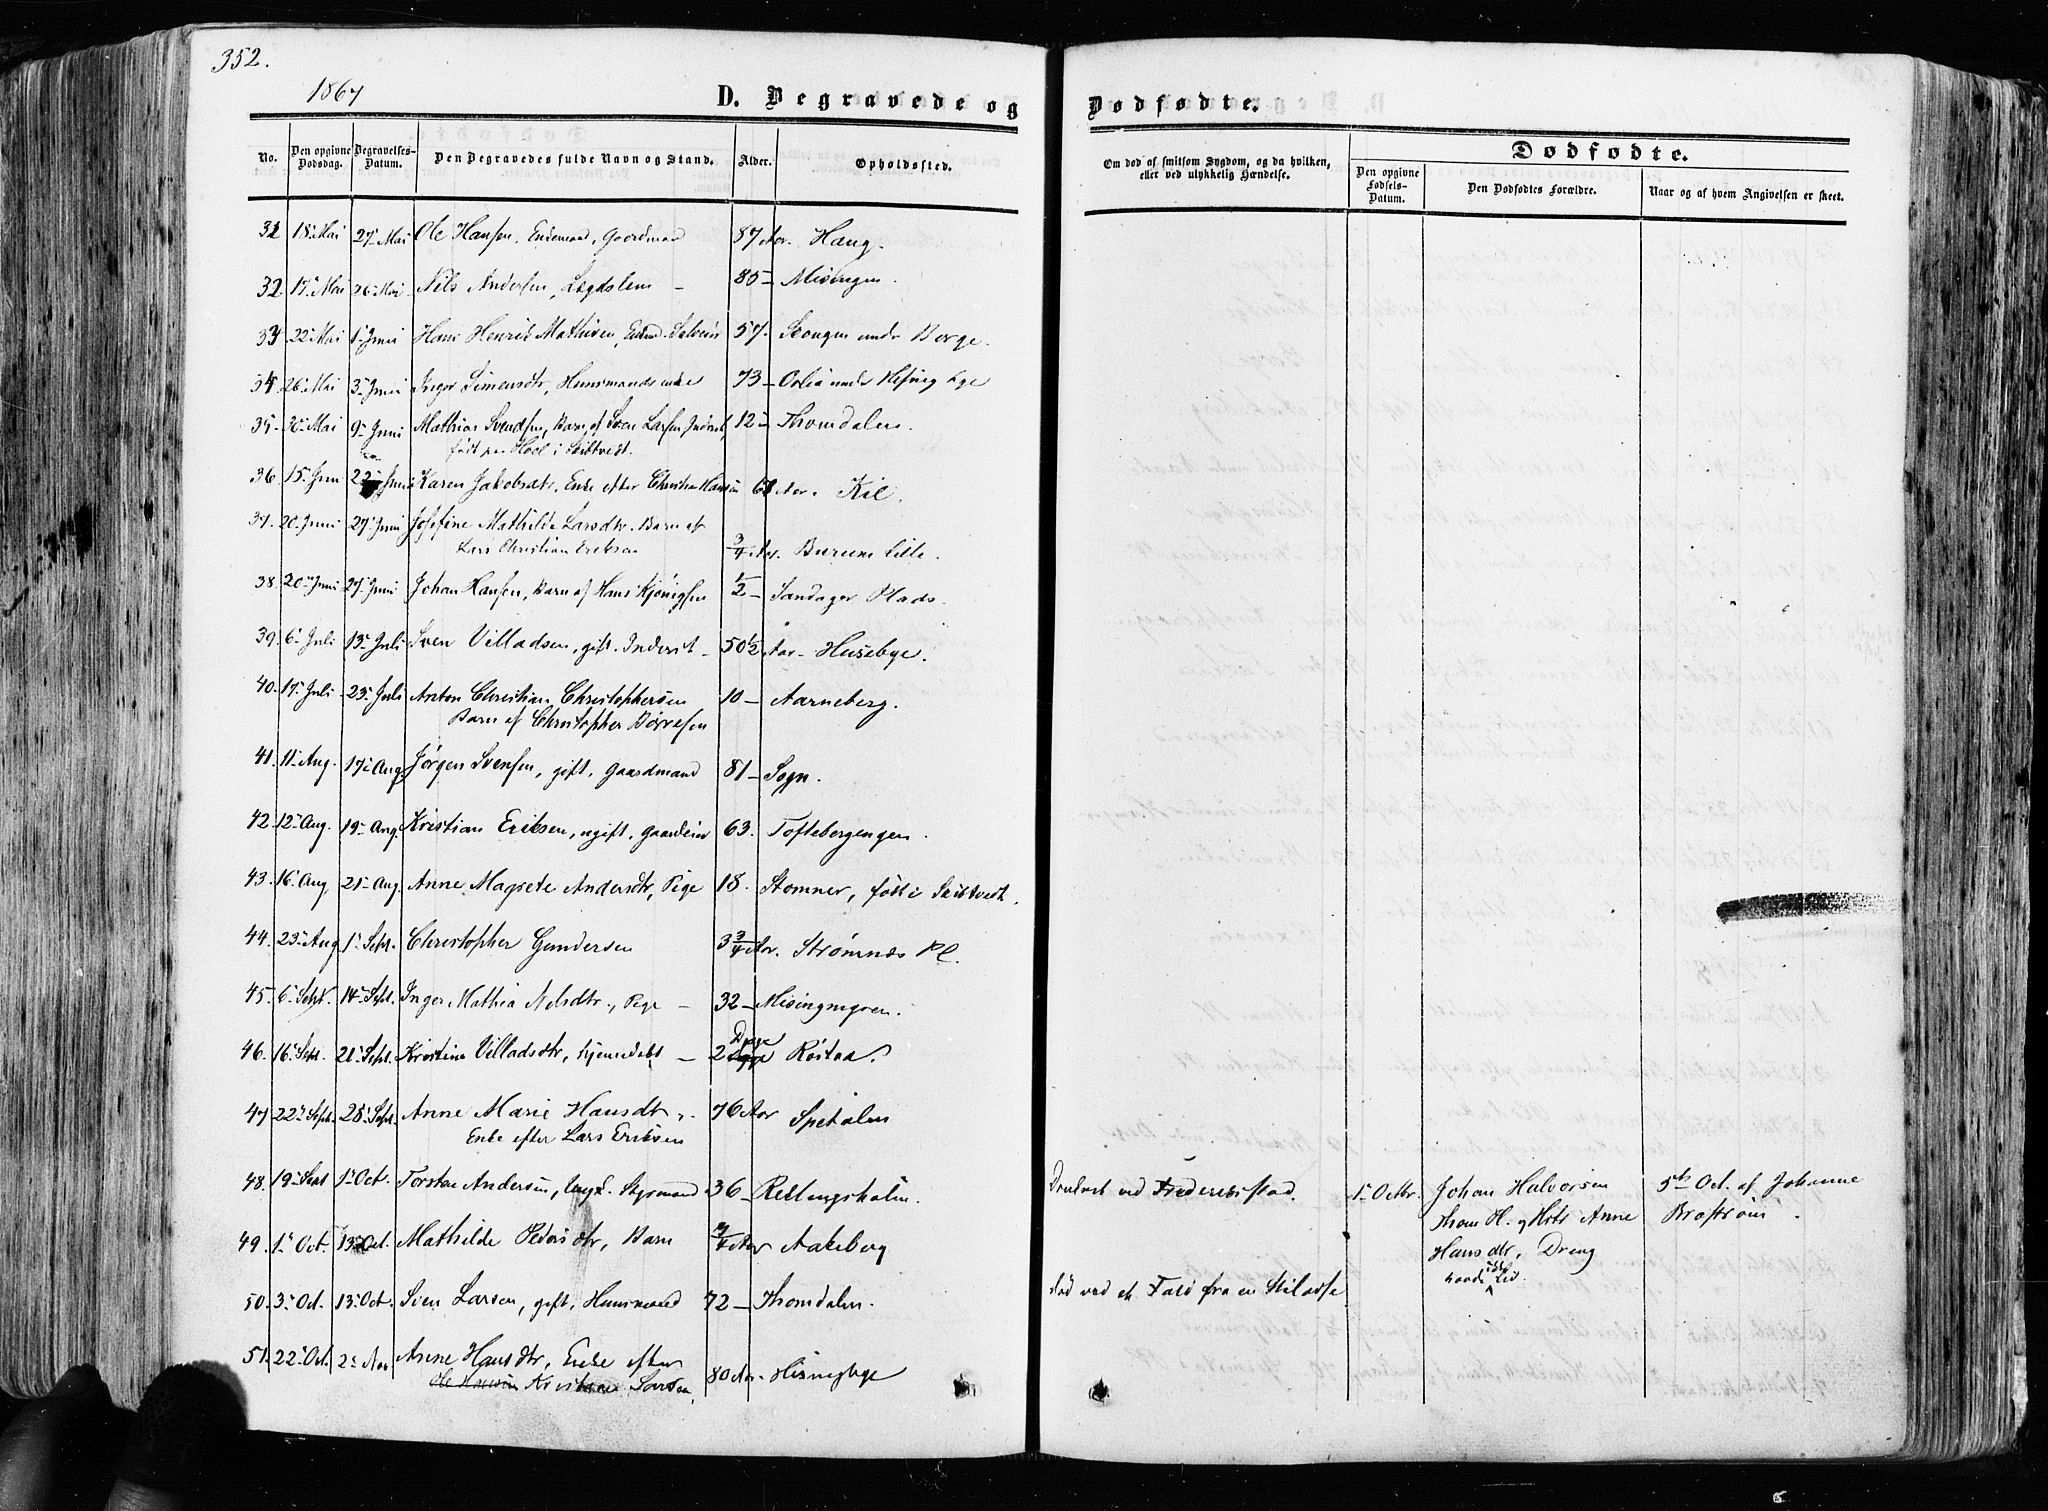 352.
1867
D. Begravede og
Dødfødte.
No.
Den opgivne Dødsdag.
Begravelses-Datum.
Den Begravedes fulde Navn og Stand.
Alder.
Opholdssted.
Om død af smitsom Sygdom, og da hvilken,
eller ved ulykkelig Hændelse.
Dødfødte.
Den opgivne Fødsels-Datum.
Den Dødfødtes Forældre.
Naar og af hvem Angivelsen er skeet.
18 Mai 27 Mai Ole Hansen, Gaardmand 87 Aar. Haug.
32 17 Mai 26 Mai Nils Andersen, Lægdslem – 85 – Misingen.
22 Mai 1 Juni Hans Henrik Mathisen, 57. Skougen under Borge.
34 26 Mai 3 Juni Inger Simensdtr, Huusmandsenke 73 –
35 Mai 9 Juni Mathias Svendsen, Barn af Sven Larsen Inderst, 12 – Thomdalen.
født paa Hoel i Skibtvedt.
36. 15 Juni 22 Juni Karen Jakobsdtr, Enke efter Christian Hansen Aar. Kil.
37. 20 Juni 27 Juni Josefine Mathilde Larsdtr. Barn af
Lars Christian Eriksen 3/4 Aar. Burum lille.
38. 20 Juni 27 Juni Johan Hansen, Barn af Hans Kjønigsen 1/2 – Sandager Plads.
39. 6 Juli 13 Juli Sven Villadsen, gift. Inderst – 50 1/2 Aar – Husebye.
40. 17 Juli 23 Juli Anton Christian Christophersen 10 – Aarneberg.
Barn af Christopher Børresen
41. 11 Aug. 17 Aug Jørgen Svensen, gift, Gaardmand 81 – Sogn.
42. 12 Aug. 19 Aug. Kristian Eriksen, ugift, 63. Toftebergengen.
43. 16 Aug 21 Aug. Anne Magrete Andersdtr, Pige 18. Stomner, født i Skibtvedt.
44. 23 Aug 1 Sept. Christopher Gundersen 3 3/4 Aar. Strømnæs Pl.
45. 6 Sept. 14 Sept. Inger Mathia Nilsdtr., Pige – 32 –
46. 16 Sept. 21 Sept. Kristine Villadsdtr, hjemmedøbt – 2 Dage Røstad.
47. 22 Sept. 28 Sept. Anne Marie Hansdtr. 76 Aar Spetalen
Enke efter Lars Eriksen
48. 19 Sept 1 Oct. Torsten Andersen, Styrmand 36 – Rellingsholm. Druknet ved Frederiksstad.
1 Octbr. Johan Halvorsen
Thom H. og Hstr Anne
Hansdtr, Dreng
havde ikke Lid.
5te Oct. af Johanne
Brostrøm.
49. 1 Oct. 13 Oct. Mathilde Pedersdtr, Barn 3/4 Aar Aakeberg
50. 3 Oct. 13 Oct. Sven Larsen, gift, Huusmand 72 – Thomdalen. død ved et Fald fra en
51. 22 Oct. 2 Nov Anne Hansdtr, Enke efter
Ole Hansen Kristian Larsen, 80 Aar. Misingbye